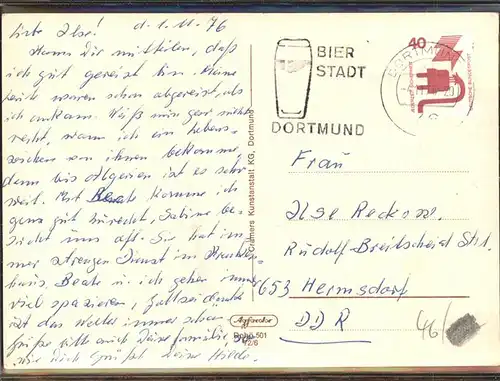 Liebe Ilse! d. 1.11.76
Kann Dir mitteilen, daß
ich gut gereist bin. Meine
waren schon abgereist, als
ich ankam. Weiß nun gar nicht
recht, wann ich ein Lebens-
zeichen von ihnen bekomme,
denn bis ist es sehr
weit. Mit Beate komme ich
ganz gut zurecht. Sabine be-
sucht uns oft. Sie hat im-
mer strengen Dienst im Kranken-
haus. Beate u. ich gehen immer
viel spazieren, Gott sei Dank
ist das Wetter immer schön.
Grüße bitte auch Deine Familie
wie Dich grüßt Deine Hilde.
Cramers Kunstanstalt KG, Dortmund
Agfacolor
501
BIER
STADT
DORTMUND
DORTMUND
40
Frau
Ilse
Rudolf-Breitscheid Str.
653 Hermsdorf
DDR
46/